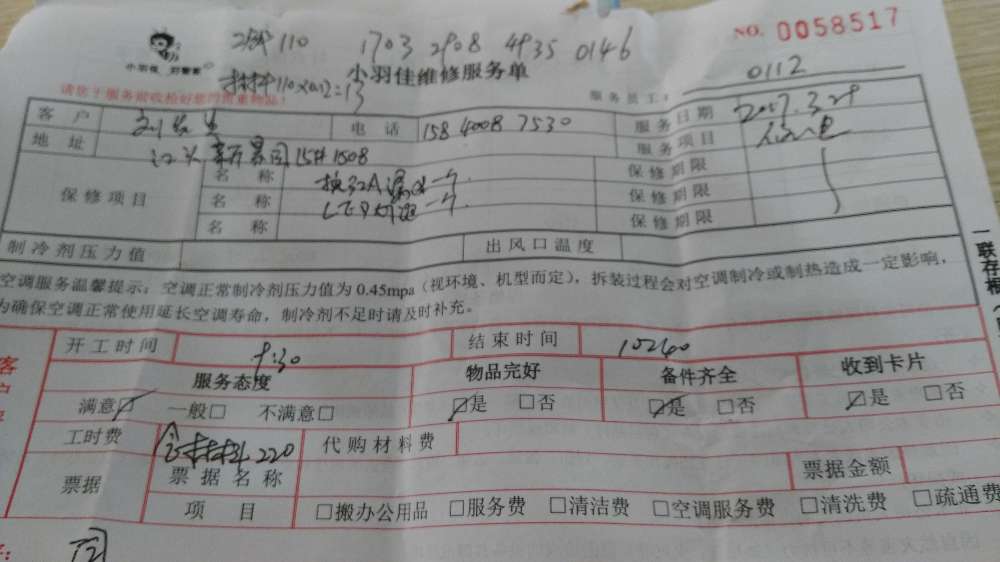 NO. 0058517
110 1703 2908 4935 0146
小羽佳维修服务单
材料110×0.12=13
服务员工: 0112
请您于服务前收检好您的贵重物品!
客户 电话 158 4008 7530 服务日期 2017.3.29
地址 15# 1508 服务项目
保修项目 名称 换32A漏保一个 保修期限
名称 LED灯 一个 保修期限
名称 保修期限
制冷剂压力值 出风口温度
空调服务温馨提示:空调正常制冷剂压力值为 0.45mpa(视环境、机型而定),拆装过程会对空调制冷或制热造成一定影响,
为确保空调正常使用延长空调寿命,制冷剂不足时请及时补充。
一联存根
开工时间 9:30 结束时间 10:40
服务态度 物品完好 备件齐全 收到卡片
满意☑ 一般□ 不满意□ ☑是 □否 ☑是 □否 ☑是 □否
工时费 含材料 220 代购材料费
票据 票据名称 票据金额
项目 □搬办公用品 □服务费 □清洁费 □空调服务费 □清洗费 □疏通费